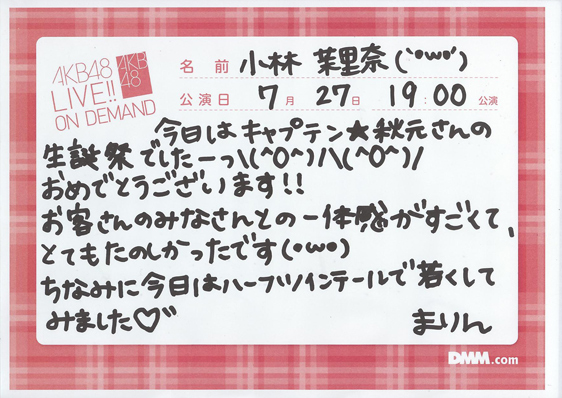 AKB48
LIVE!!
ON DEMAND
AKB
48
名 前 小林 茉里奈(`•ω•´)
公演日 7月 27日 19:00公演
今日はキャプテン★秋元さんの
生誕祭でしたーっ\(^O^)/\(^O^)/
おめでとうございます!!
お客さんのみなさんとの一体感がすごくて、
とてもたのしかったです(•ω•)
ちなみに今日はハーフツインテールで若くして
みました♡"
まりん
DMM.com